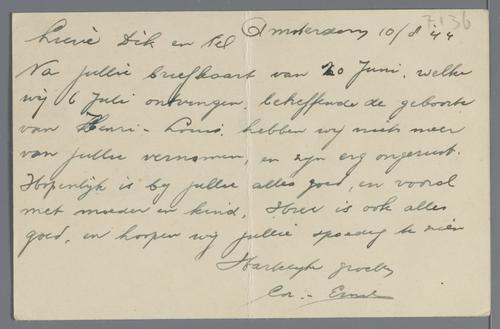 7.136
Lieve Dik en Nel Amsterdam 10/8 '44
Na jullie briefkaart van 20 Juni, welke
wij 6 Juli ontvingen, betreffende de geboorte
van Henri-Louis, hebben wij niets meer
van jullie vernomen, en zijn erg ongerust.
Hopenlijk is bij jullie alles goed, en vooral
met moeder en kind. Hier is ook alles
goed, en hoopen wij jullie spoedig te zien
Hartelijke groeten
Cor. -